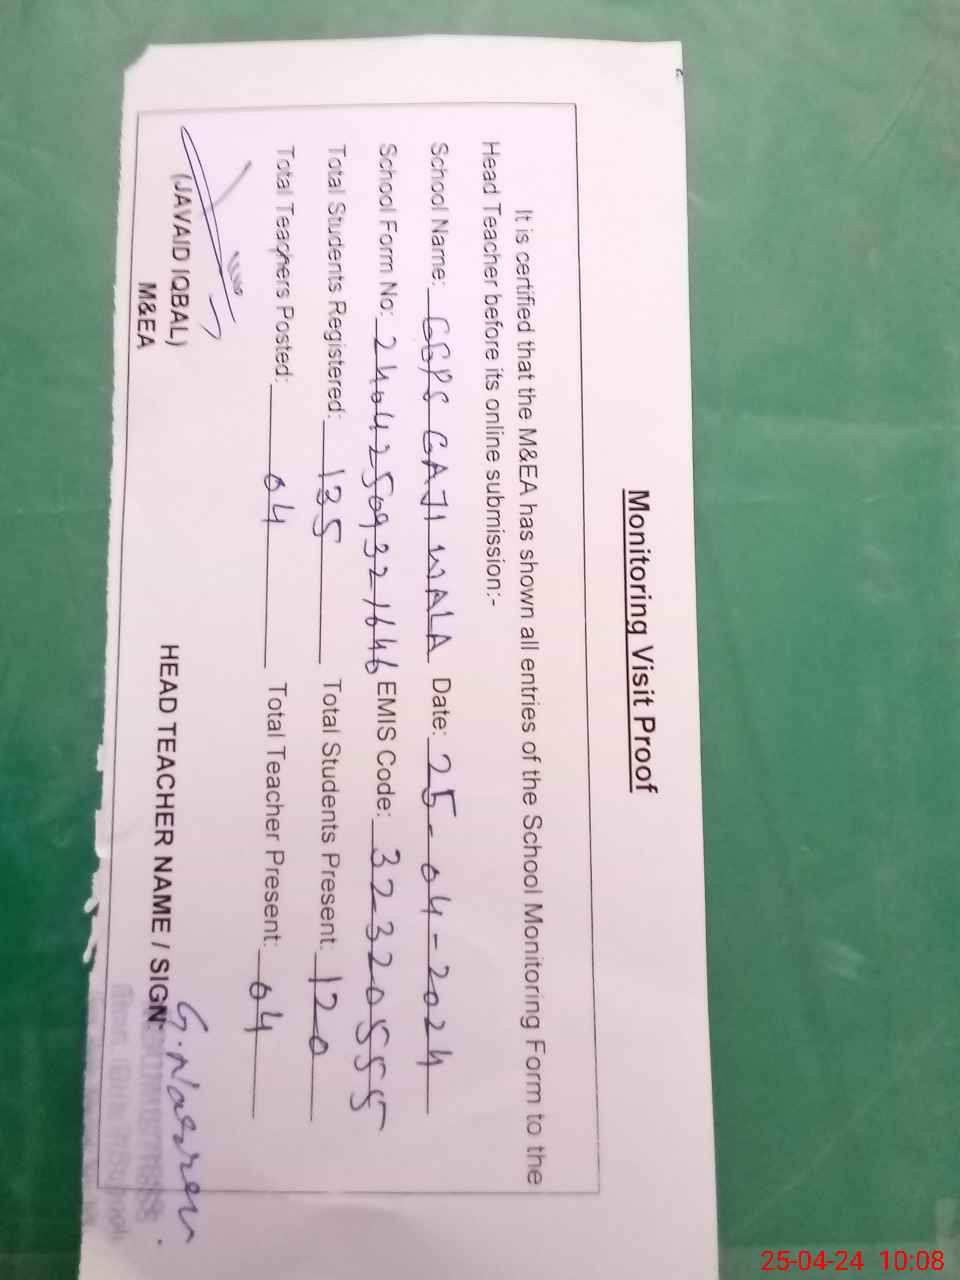 Monitoring Visit Proof
It is certified that the M&EA has shown all entries of the School Monitoring Form to the
Head Teacher before its online submission:-
School Name: GGPS GAJI WALA Date: 25-04-2024
School Form No: 24042509321646 EMIS Code: 32320555
Total Students Registered: 135 Total Students Present: 120
Total Teachers Posted: 04 Total Teacher Present: 04
(JAVAID IQBAL)
M&EA
HEAD TEACHER NAME / SIGN:
25-04-24 10:08